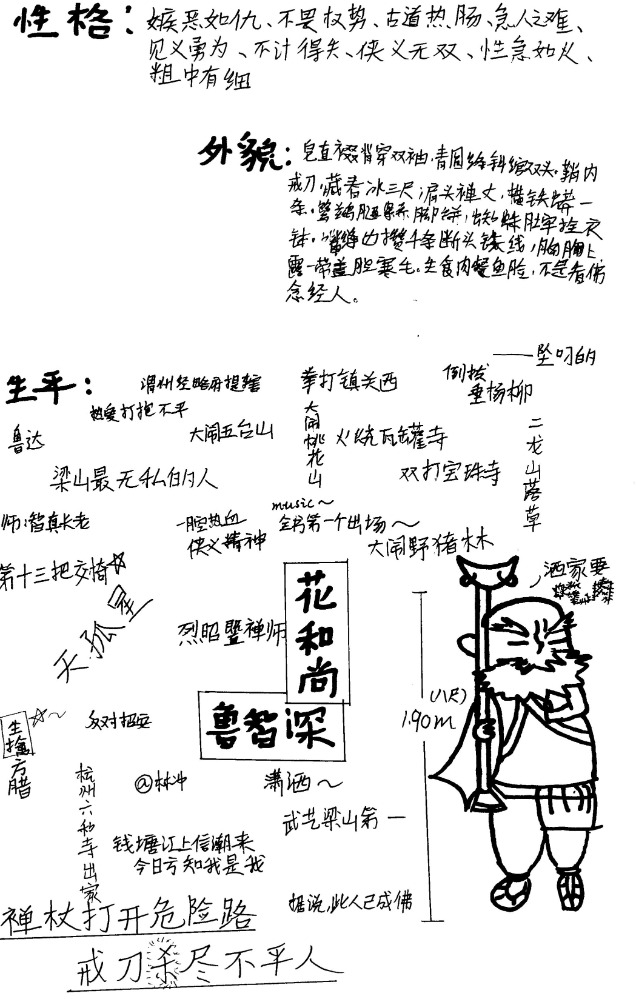 性格：嫉恶如仇、不畏权势、古道热肠、急人之难、
见义勇为、不计得失、侠义无双、性急如火、
粗中有细
外貌：皂直裰背穿双袖，青圆绦斜绾双头，鞘内
戒刀，藏春冰三尺，肩头禅丈，横铁蟒一
条。鹭鹚腿紧系脚绑，蜘蛛肚牢拴衣
钵。嘴缝边攒千条断头铁线，胸脯上
露一带盖胆寒毛。生食肉餐鱼脸，不是看佛
念经人。
生平：
渭州经略府提辖
拳打镇关西
倒拔
垂杨柳
——坠叼的
热爱打抱不平
鲁达
大闹五台山
大闹桃花山
火烧瓦罐寺
二龙山落草
梁山最无私的人
双打宝珠寺
师：智真长老
一腔热血
侠义精神
music～
全书第一个出场～
大闹野猪林
第十三把交椅☆
天孤星
烈昭暨禅师
花和尚
鲁智深
洒家要
(八尺)
1.90m
生擒方腊
☆～
反对招安
杭州六和寺出家
@林冲
潇洒～
武艺梁山第一
钱塘江上信潮来
今日方知我是我
据说，此人已成佛
禅杖打开危险路
戒刀杀尽不平人